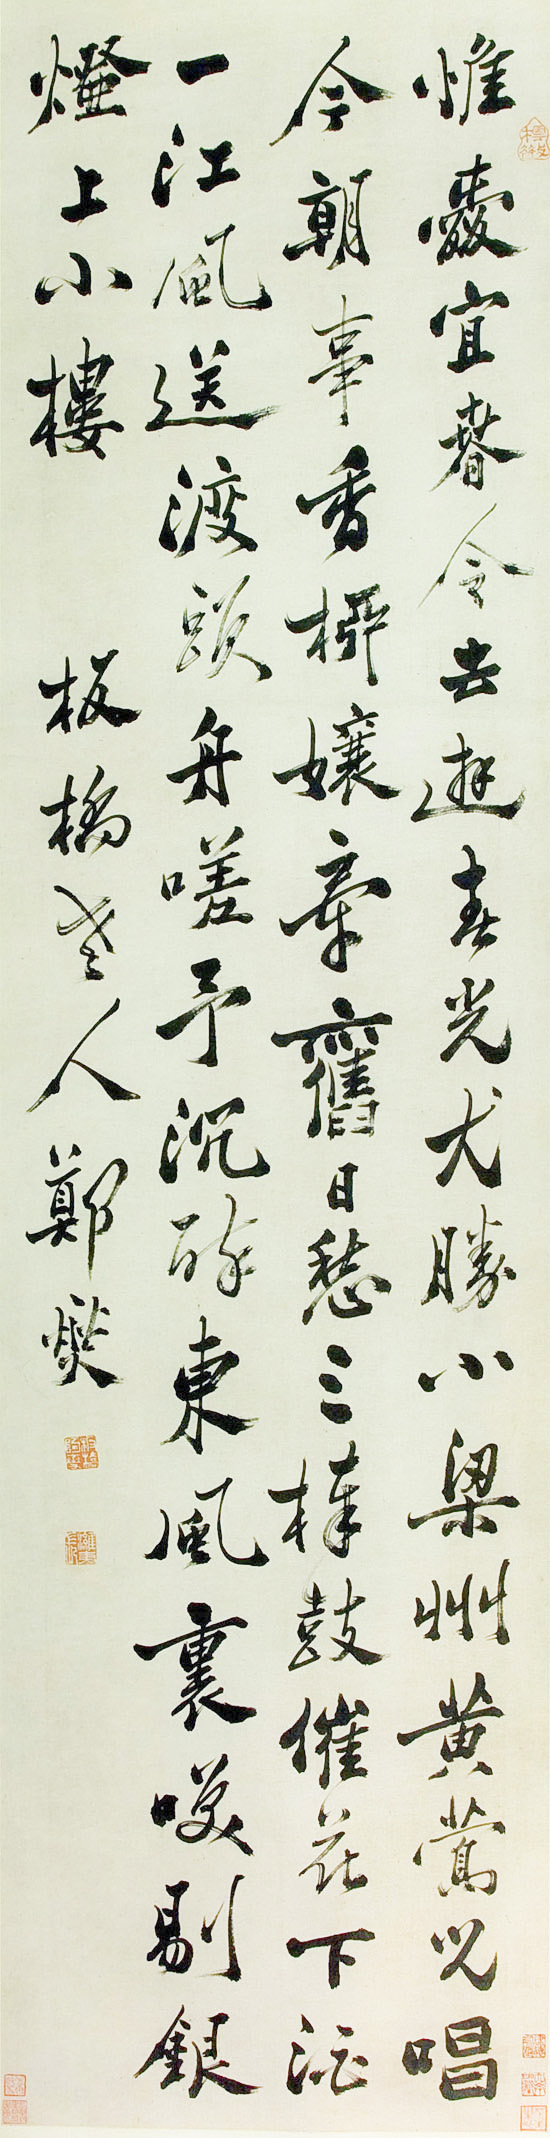 惟愛宜春令去遊春光尤勝小梁州黄鶯兒唱
今朝事香柳孃牽舊日愁三棒鼓催花下酒
一江風送渡頭舟嗟予沉醉東風裏咲剔銀
燈上小樓 板橋老人鄭燮